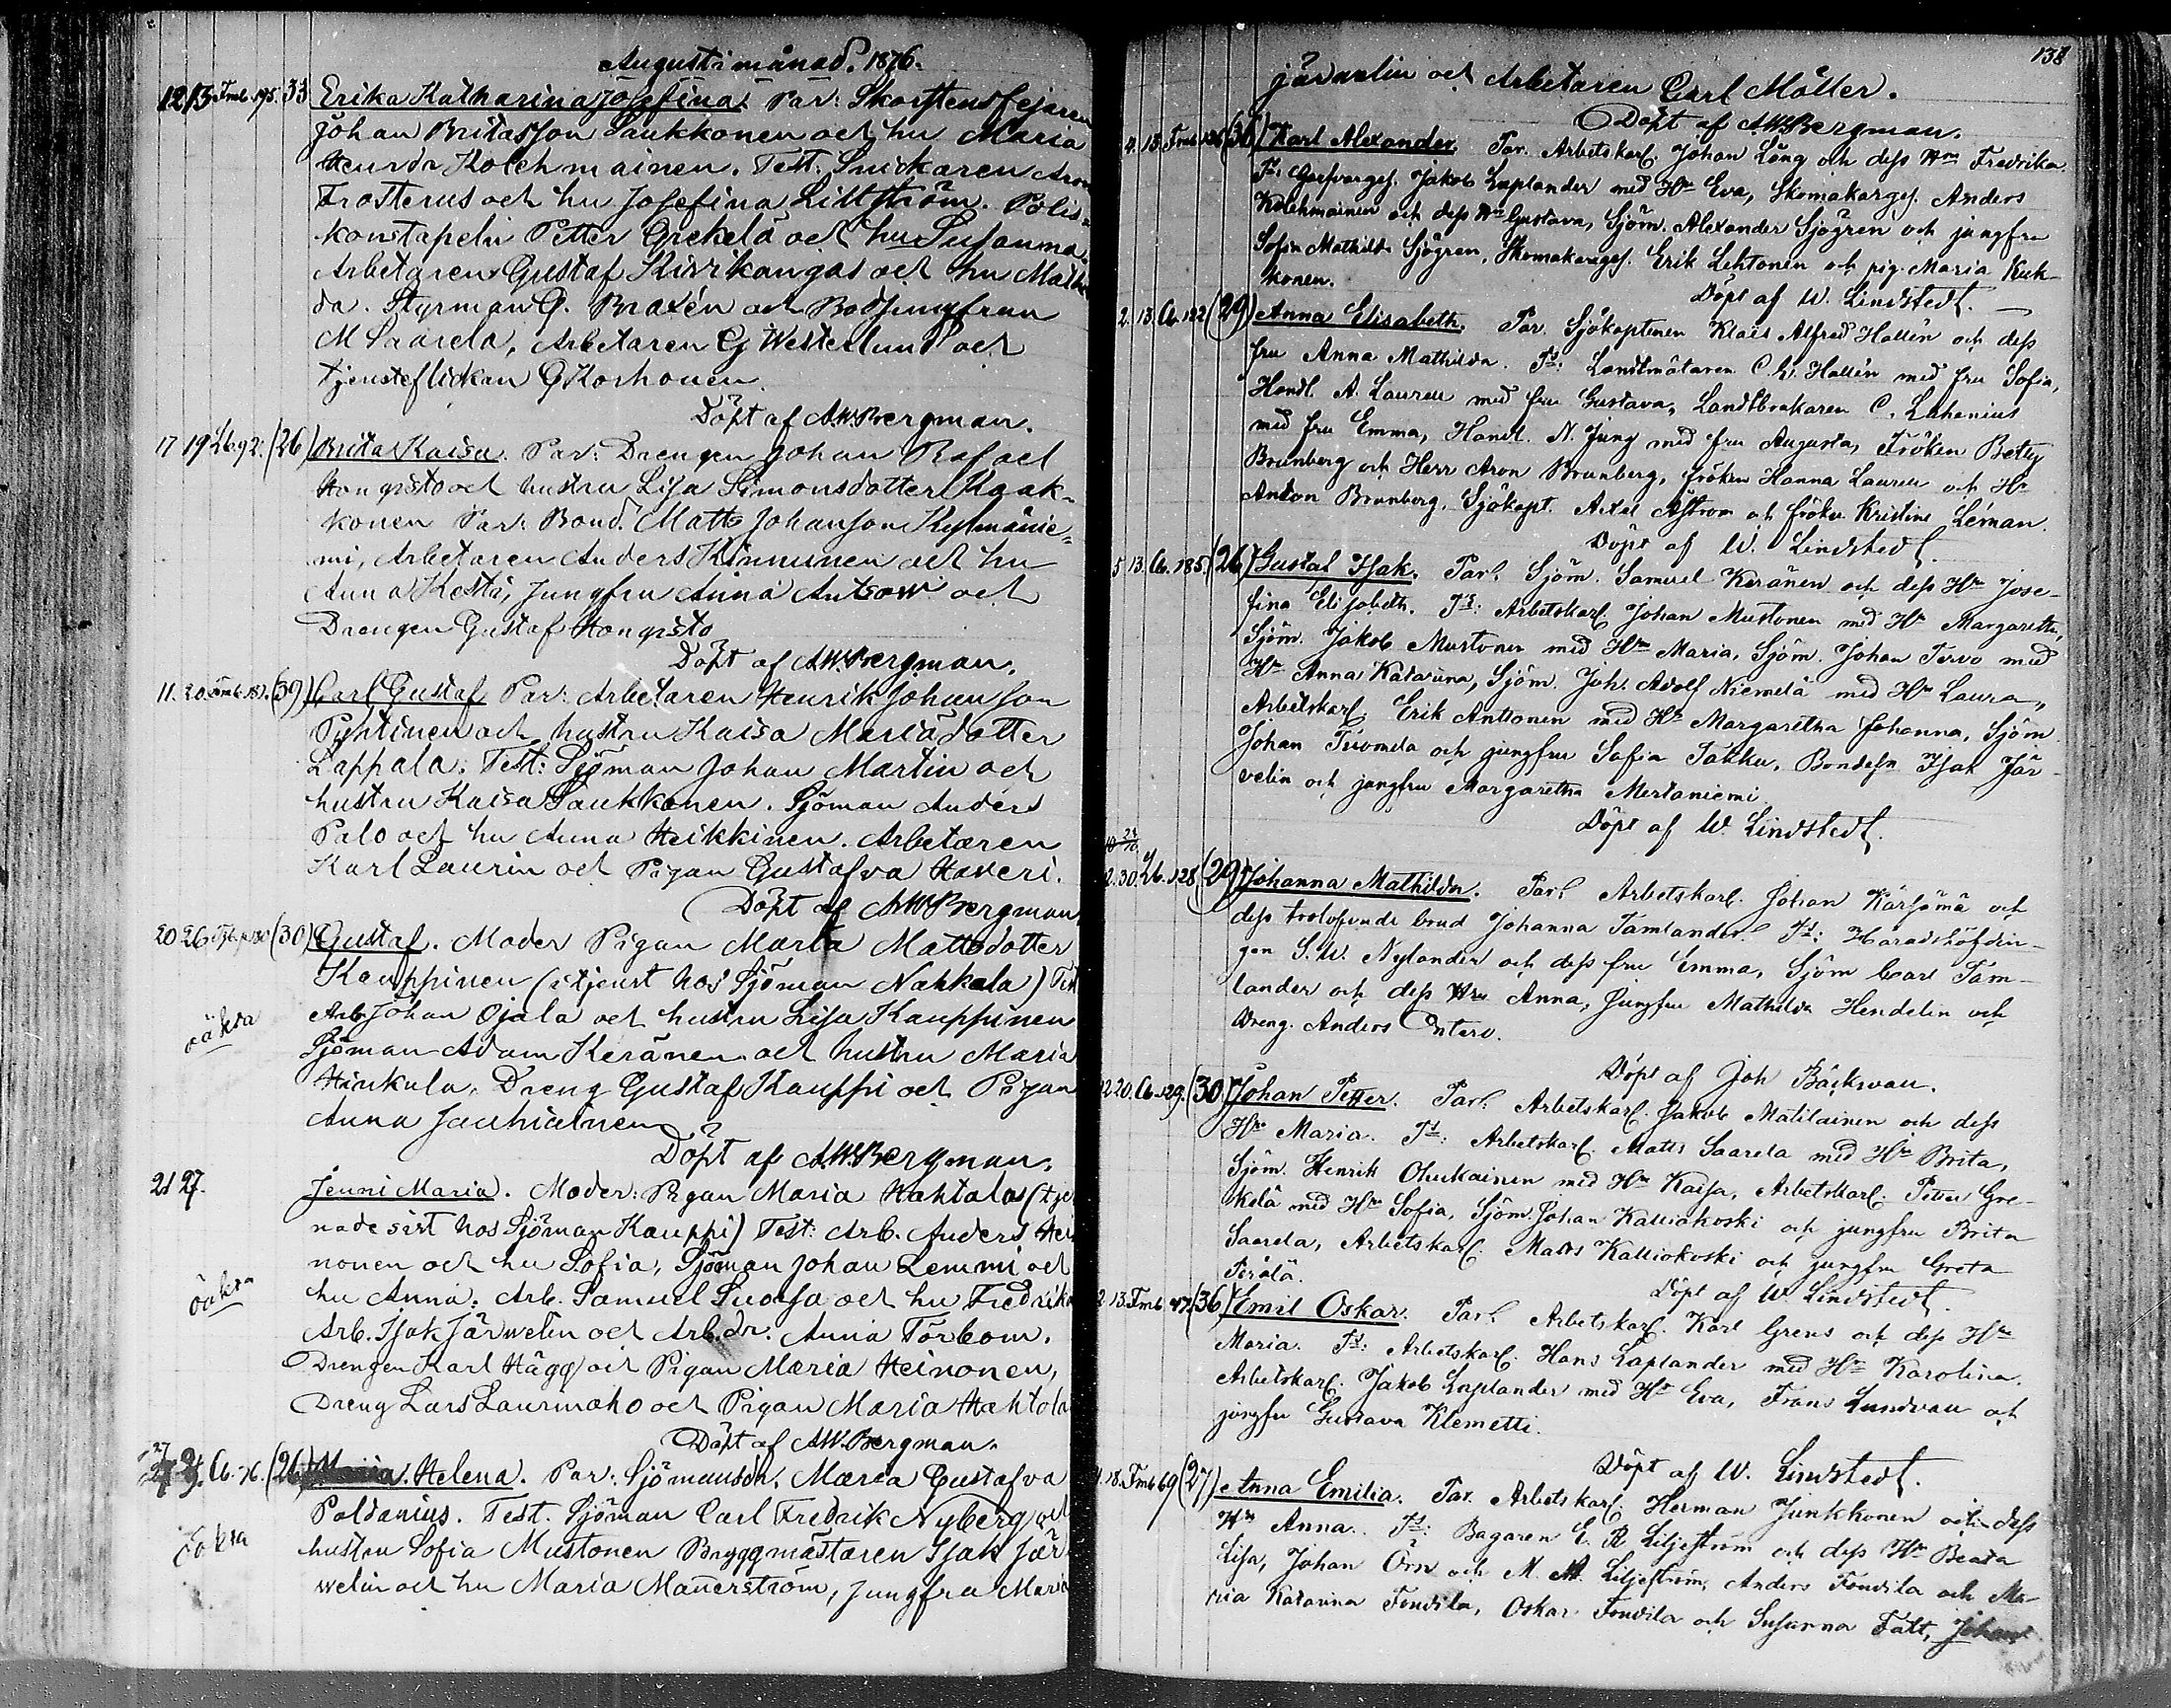 Augusti månad. 1876.
12 13 Fmb 195. 33 Erika Katharina Josefina. Par: Skorstensfejaren
Johan Britasson Saukkonen och hu Maria
Henrdr Kolehmainen. Test. Snickaren Aron
Frosterus och hu Josefina Littström. Polis-
konstapeln Petter Grekelä och hu Susanna.
Arbetaren Gustaf Kivikangas och hu Mathil
da. Styrman G. Braxén och Bodjungfrun
M Saarela, Arbetaren G Westerlund och
tjensteflickan G Korhonen.
Döpt af A.W.Bergman.
17 19 Lb. 92. (26) Brita Kaisa. Par: Drengen Johan Rafael
Hongisto och hustru Lisa Simonsdotter Kaak-
konen Par: Bond. Matts Johansson Kylmänie-
mi, Arbetaren Anders Kinnunen och hu
Anna Kesti, Jungfru Anna Antson och
Drengen Gustaf Hongisto
Döpt af A.W.Bergman.
11. 20. Fmb. 187. (39) Carl Gustaf. Par: Arbetaren Henrik Johansson
Pyhtinen och hustru Kaisa Mariadotter
Lappala. Test: Sjöman Johan Martin och
hustru Kaisa Saukkonen. Sjöman Anders
Palo och hu Anna Heikkinen. Arbetaren
Karl Laurin och Pigan Gustafva Haveri.
Döpt af A.W.Bergman
20 26 (30) Gustaf. Moder Pigan Maria Mattsdotter
Kauppinen (i tjenst hos Sjöman Nahkala) Test
oäkta Arb. Johan Ojala och hustru Lisa Kauppinen
Sjöman Adam Keränen och hustru Maria
Hinkula. Dreng Gustaf Kauppi och Pigan
Anna Jauhiainen
Döpt af A.W.Bergman.
21 27. Jenni Maria. Moder: Pigan Maria Hahtala (tje
nade sist hos Sjöman Kauppi) Test: Arb. Anders Hei
nonen och hu Sofia, Sjöman Johan Lemmi och
oäkta hu Anna. Arb. Samuel Suorsa och hu Fredrika
Arb. Isak Järwelin och Arb.dr. Anna Törbom.
Drengen Karl Hägg och Pigan Maria Heinonen,
Dreng Lars Laurinaho och Pigan Maria Hahtola
Döpt af A.W.Bergman.
27 Cb. 76. (26) Maria Helena. Par: Sjömansdr. Maria Gustafva
Poldanius. Test. Sjöman Carl Fredrik Nyberg och
oäkta hustru Sofia Mustonen Byggmästaren Isak Jär
welin och hu Maria Mannerström, Jungfru Maria
138
järwelin och Arbetaren Carl Möller.
Döpt af A.W.Bergman.
4. 13. Fmb 136 (36) Karl Alexander. Par. Arbetskarl. Johan Lång och dess Hru Fredrika.
Ts: Garfvarges. Jakob Laplander med Hru Eva, Skomakarges. Anders
Kolehmainen och dess Hru Gustava, Sjöm. Alexander Sjögren och jungfru
Sofia Mathilda Sjögren, Skomakarges. Erik Lehtonen och pig. Maria Kuk-
konen.
Döpt af W. Lindstedt.
2. 13. Cb. 122 (29) Anna Elisabeth. Par. Sjökaptenen Klaës Alfred Hallén och dess
fru Anna Mathilda. Ts: Landtmätaren C. W. Hallén med fru Sofia,
Handl. A. Lauren med fru Gustava, Landtbrukaren C. Lahenius
med fru Emma, Handl. N. Jung med fru Augusta, Fröken Betty
Brunberg och Herr Aron Brunberg, fröken Hanna Lauren och Hr
Anton Brunberg, Sjökapt. Axel Åström och fröken Kristine Léman.
Döpt af W. Lindstedt.
5 13. Cb. 185. (26) Gustaf Isak. Par. Sjöm. Samuel Keränen och dess Hru Jose-
fina Elisabeth. Ts: Arbetskarl. Johan Mustonen med Hr Margaretha,
Sjöm. Jakob Mustonen med Hru Maria, Sjöm. Johan Tervo med
Hr Anna Katarina, Sjöm. Joh. Adolf Niemelä med Hru Laura,
Arbetskarl. Erik Anttonen med Hr Margaretha Johanna, Sjöm
Johan Tuomela och jungfru Sofia Takku, Bondesn Isak Jär-
velin och jungfru Margaretha Mertaniemi.
Döpt af W. Lindstedt.
30. Lb. 128 (29) Johanna Mathilda. Par. Arbetskarl. Johan Kärsämä och
dess trolofvade brud Johanna Tamlander. Ts: Häradshöfdin-
gen S. W. Nylander och dess fru Emma, Sjöm Carl Tam-
lander och dess Hru Anna, Jungfru Mathilda Hendelin och
Dreng. Anders Ontero.
Döpt af Joh Bäckman.
12 20. Cb. 129. (30) Johan Petter. Par. Arbetskarl. Jakob Matilainen och dess
Hr Maria. Ts: Arbetskarl. Matts Saarela med Hru Brita,
Sjöm. Henrik Ohukainen med Hru Kaisa, Arbetskarl. Petter Gre-
kelä med Hru Sofia, Sjöm. Johan Kalliokoski och jungfru Brita
Saarela, Arbetskarl. Matts Kalliokoski och jungfru Greta
Perälä.
Döpt af W. Lindstedt.
2 13. Fmb 42 (36) Emil Oskar. Par. Arbetskarl. Karl Grens och dess Hru
Maria. Ts: Arbetskarl. Hans Laplander med Hr Karolina,
Arbetskarl. Jakob Laplander med Hr Eva, Frans Lundvan och
jungfru Gustava Klemetti.
Döpt af W. Lindstedt.
18. Fmb 69 (27) Anna Emilia. Par. Arbetskarl. Herman Junkkonen och dess
Hr Anna. Ts: Bagaren E. R Liljeström och dess Hr Beata
Lisa, Johan Örn och M. M. Liljeström, Anders Fondila och Ma-
ria Katarina Fondila, Oskar Fondila och Susanna Falt, Johan